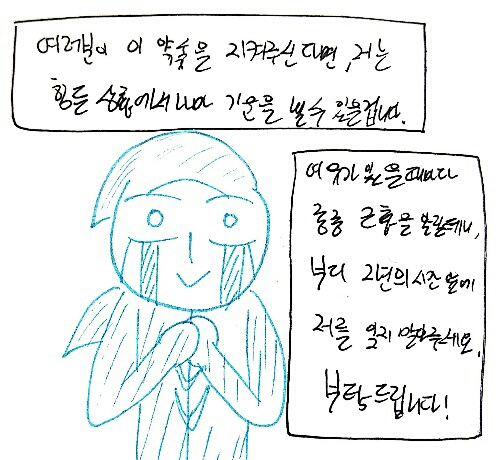 여러분이 이 약속을 지켜주신다면, 저는
힘든 상황에서나마 기운을 낼 수 있을겁니다.
여유가 있을때마다
종종 근황을 올릴테니,
부디 2년의 시간 앞에
저를 잊지 말아주세요.
부탁드립니다!